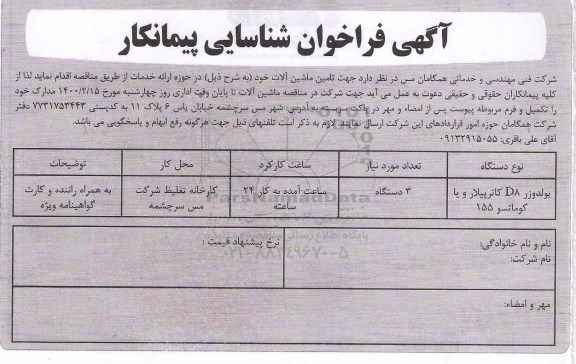 آگهی فراخوان شناسایی پیمانکار
شرکت فنی مهندسی و خدماتی همگامان مس در نظر دارد جهت تامین ماشین آلات خود (به شرح ذیل) در حوزه ارائه خدمات از طریق مناقصه اقدام نماید لذا از
کلیه پیمانکاران حقوقی و حقیقی دعوت به عمل می آید جهت شرکت در مناقصه ماشین آلات تا پایان وقت اداری روز چهارشنبه مورخ ۱۴۰۰/۲/۱۵ مدارک خود
را تکمیل و فرم مربوطه پیوست پس از امضاء و مهر در پاکت سربسته به آدرس: شهر مس سرچشمه خیابان یاس ۶ پلاک ۱۱ به کدپستی ۷۷۳۱۷۵۳۴۴۳ دفتر
شرکت همگامان حوزه امور قراردادهای این شرکت ارسال نمائید. لازم به ذکر است تلفنهای ذیل جهت هرگونه رفع ابهام و پاسخگویی می باشد.
آقای علی باقری: ۰۹۱۳۲۹۱۵۰۵۵
نوع دستگاه تعداد مورد نیاز ساعت کارکرد محل کار توضیحات
بولدوزر D۸ کاترپیلار و یا ۳ دستگاه ساعت آمده به کار ۲۴ کارخانه تغلیظ شرکت به همراه راننده و کارت
کوماتسو ۱۵۵ ساعته مس سرچشمه گواهینامه ویژه
ParsNamadData
پایگاه اطلاع رسانی
۰۲۱-۸۸۳۴۹۶۷۰-۵
نام و نام خانوادگی: نرخ پیشنهاد قیمت :
نام شرکت:
مهر و امضاء: